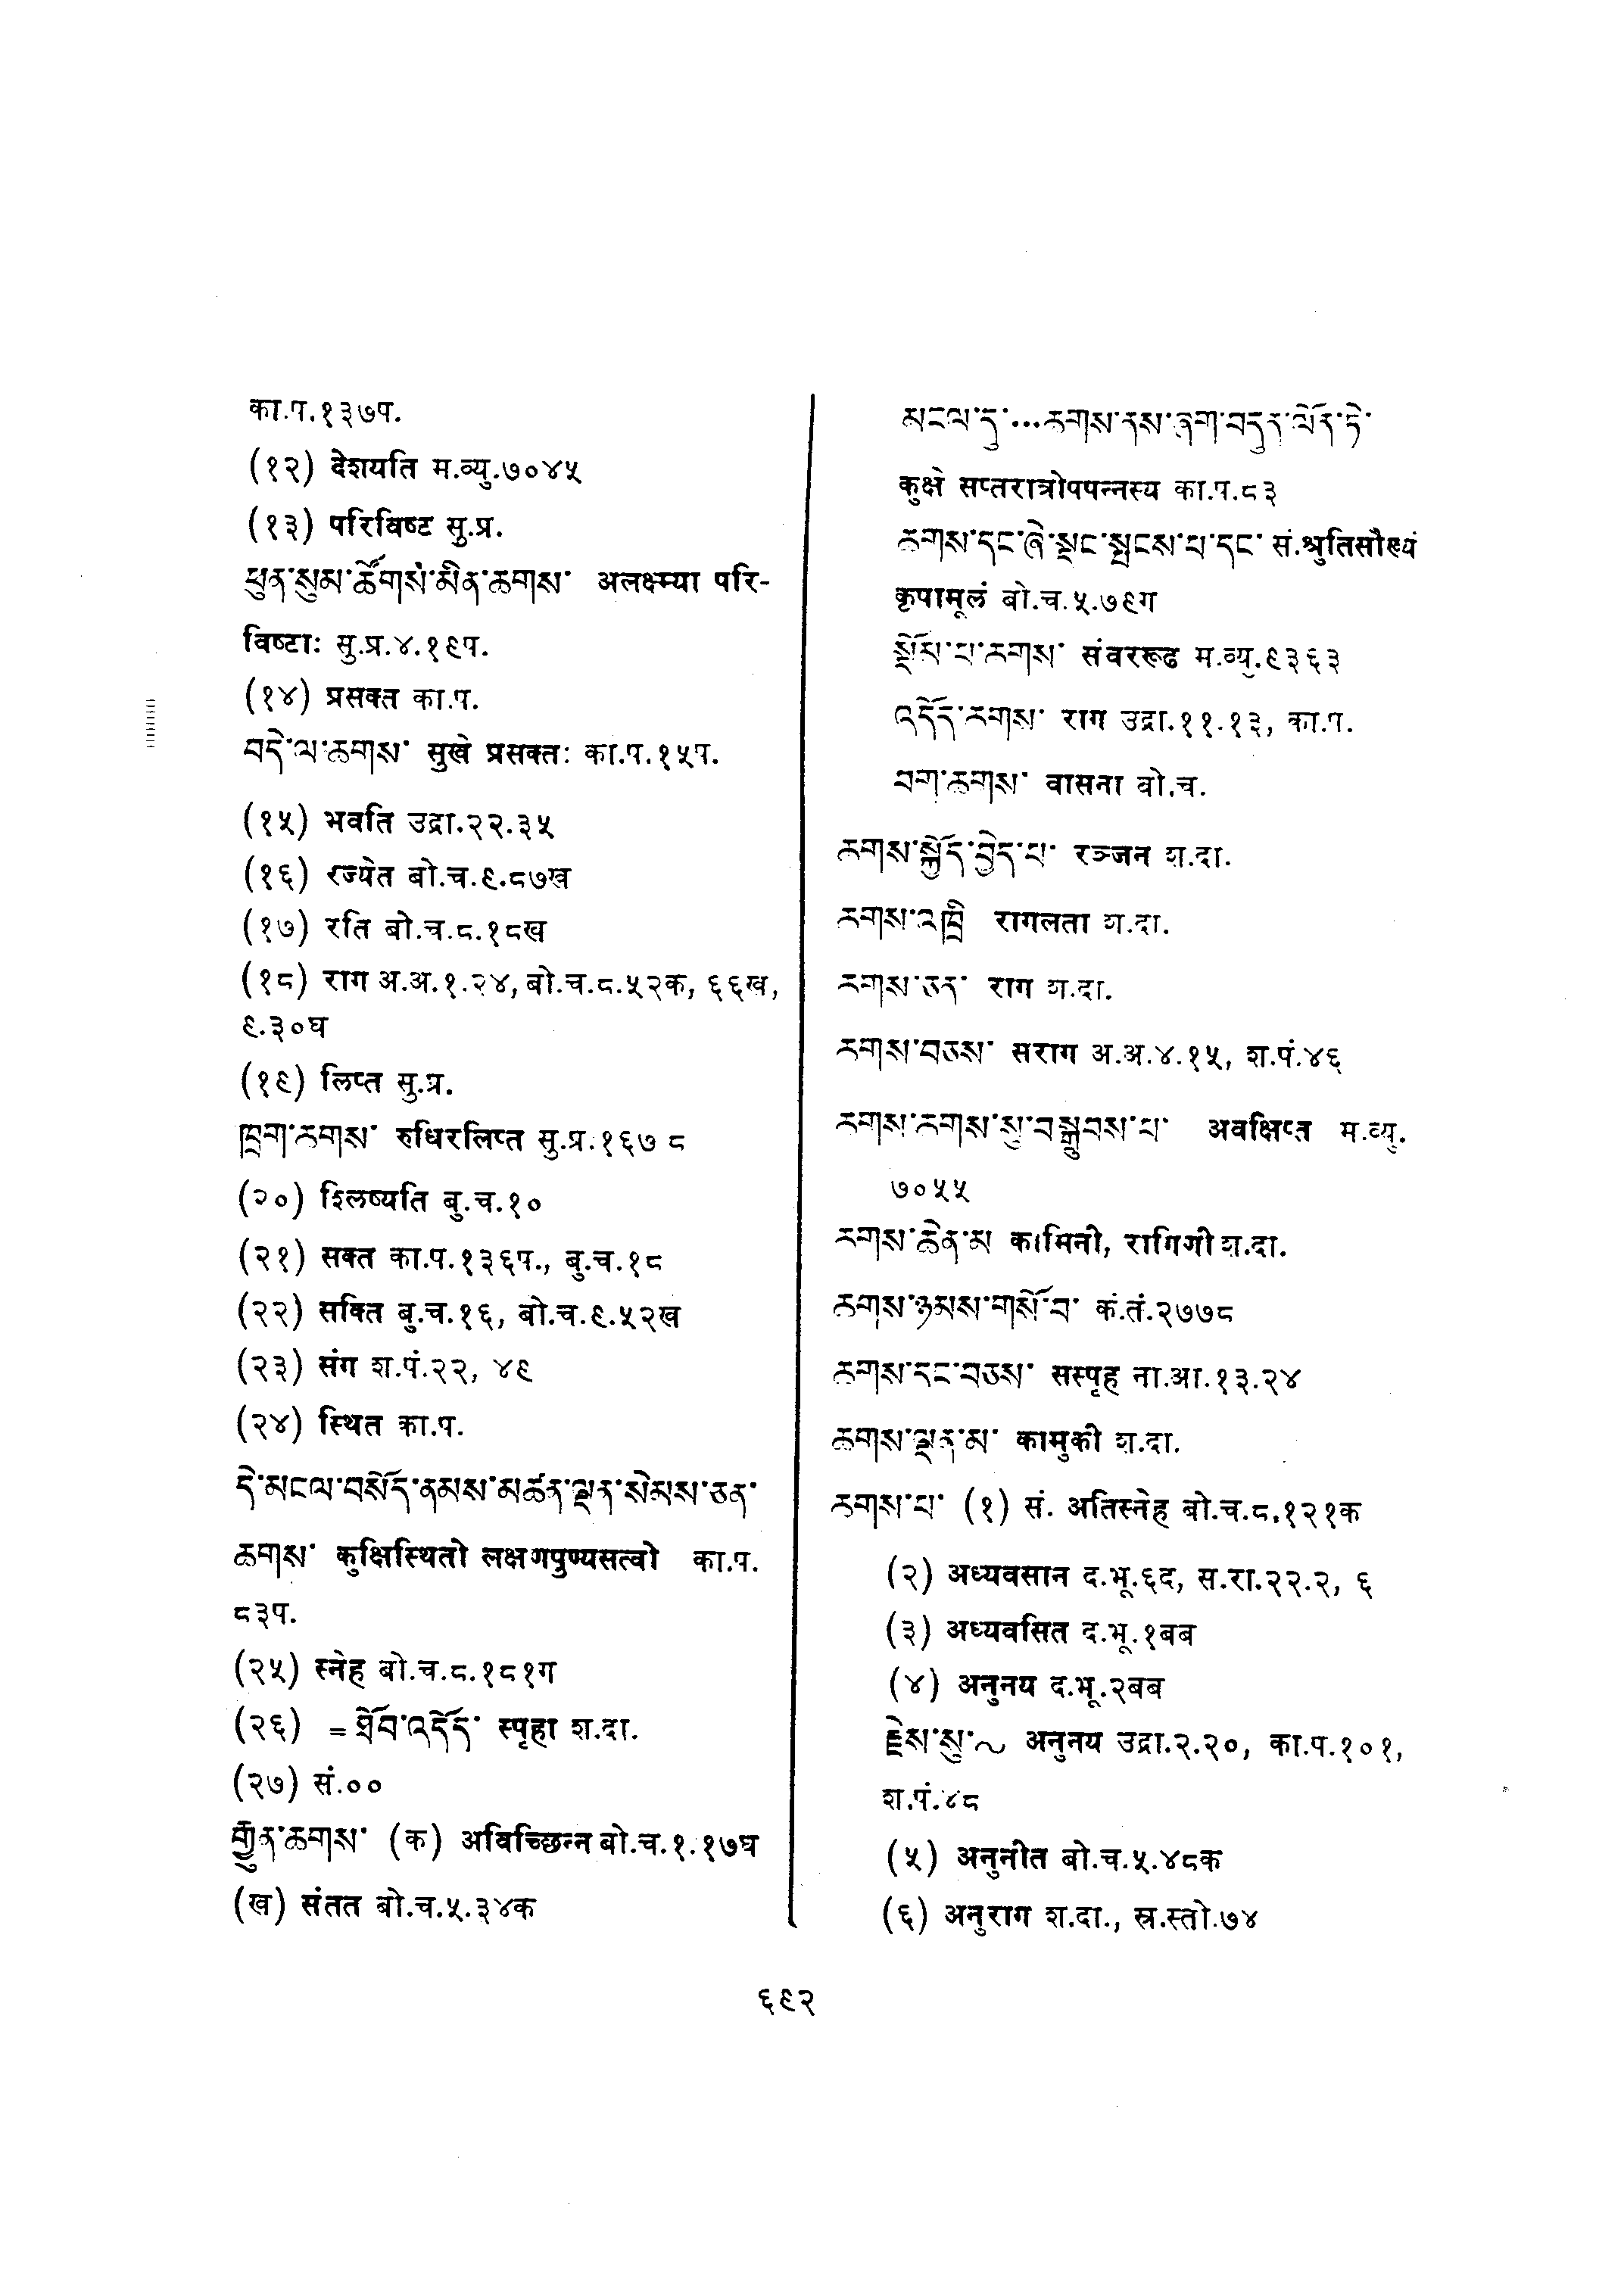 का.प.१३७प.
(१२) देशयति म.व्यु.७०४५
(१३) परिविष्ट सु.प्र.
ཕུན་སུམ་ཚོགས་མིན་ཆགས་ अलक्ष्म्या परि-
विष्टाः सु.प्र.४.१९प.
(१४) प्रसक्त का.प.
བདེ་ལ་ཆགས་ सुखे प्रसक्तः का.प.१५प.
(१५) भवति उद्रा.२२.३५
(१६) रज्येत बो.च.९.८७ख
(१७) रति बो.च.८.१८ख
(१८) राग अ.अ.१.२४, बो.च.८.५२क, ६६ख,
९.३०घ
(१९) लिप्त सु.प्र.
ཁྲག་ཆགས་ रुधिरलिप्त सु.प्र.१६७ ८
(२०) श्लिष्यति बु.च.१०
(२१) सक्त का.प.१३६प., बु.च.१८
(२२) सक्ति बु.च.१६, बो.च.९.५२ख
(२३) संग श.पं.२२, ४९
(२४) स्थित का.प.
དེ་མངལ་བསོད་ནམས་མཚན་ལྡན་སེམས་ཅན་
ཆགས་ कुक्षिस्थितो लक्षणपुण्यसत्वो का.प.
८३प.
(२५) स्नेह बो.च.८.१८१ग
(२६) =ཐོབ་འདོད་ स्पृहा श.दा.
(२७) सं.००
རྒྱུན་ཆགས་ (क) अविच्छिन्न बो.च.१.१७घ
(ख) संतत बो.च.५.३४क
མངལ་དུ་...ཆགས་ནས་ཞག་བདུན་ལོན་ཏེ་
कुक्षे सप्तरात्रोपपन्नस्य का.प.८३
ཆགས་དང་ཞེ་སྡང་སྤངས་པ་དང་ सं.श्रुतिसौख्यं
कृपामूलं बो.च.५.७९ग
སྡོམ་པ་ཆགས་ संवररूढ म.व्यु.९३६३
འདོད་ཆགས་ राग उद्रा.११.१३, का.प.
བག་ཆགས་ वासना बो.च.
ཆགས་སྐྱེད་བྱེད་པ་ रञ्जन श.दा.
ཆགས་འཁྲི रागलता श.दा.
ཆགས་ཅན་ राग श.दा.
ཆགས་བཅས་ सराग अ.अ.४.१५, श.पं.४६
ཆགས་ཆགས་སུ་བསྒྲུབས་པ་ अवक्षिप्त म.व्यु.
७०५५
ཆགས་ཆེན་མ कामिनी, रागिणी श.दा.
ཆགས་ཉམས་གསོ་བ་ कं.तं.२७७८
ཆགས་དང་བཅས་ सस्पृह ना.आ.१३.२४
ཆགས་ལྡན་མ་ कामुकी श.दा.
ཆགས་པ་ (१) सं. अतिस्नेह बो.च.८.१२१क
(२) अध्यवसान द.भू.६द, स.रा.२२.२, ६
(३) अध्यवसित द.भू.१बब
(४) अनुनय द.भू.२बब
རྗེས་སུ་~ अनुनय उद्रा.२.२०, का.प.१०१,
श.पं.४८
(५) अनुनीत बो.च.५.४८क
(६) अनुराग श.दा., स्र.स्तो.७४
६९२